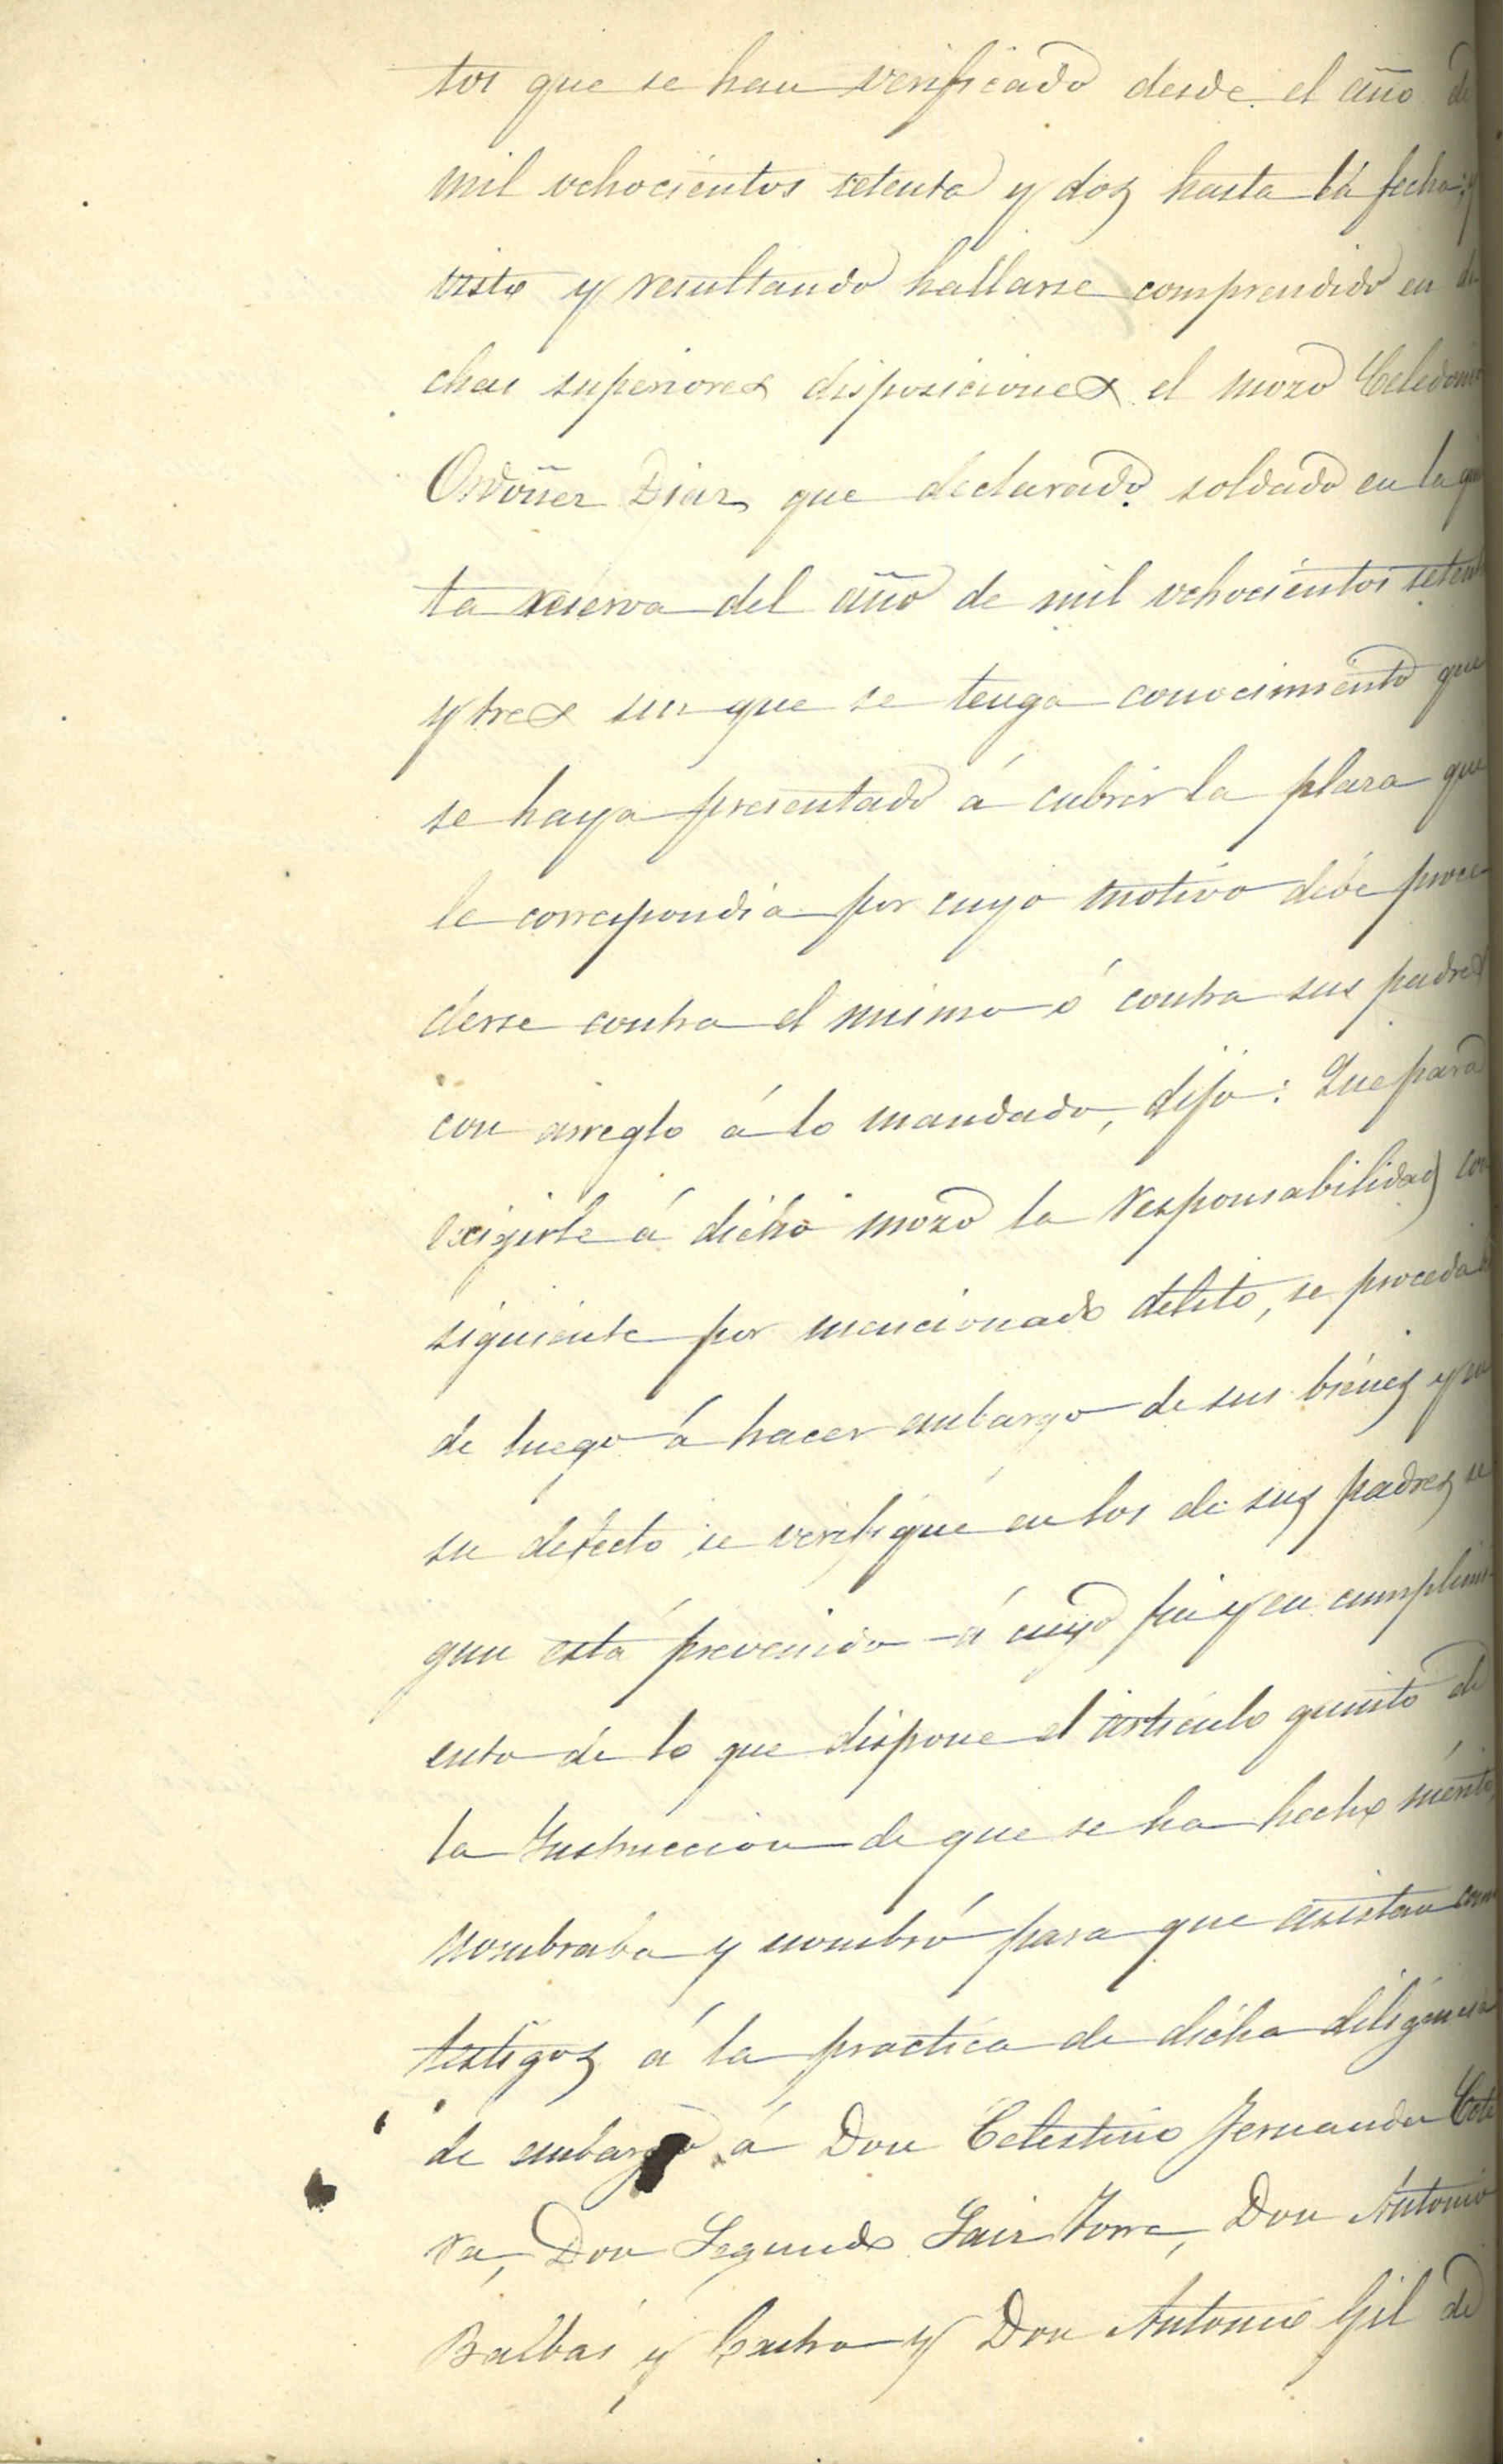 tos que se han verificado desde el año de
mil ochocientos setenta y dos hasta la fecha: y
visto y resultando hallarse comprendido en di
chas superiores disposiciones el mozo Celedonio
Ordoñez Diaz que declarado soldado en la quin
ta reserva del año de mil ochocientos setenta
y tres sin que se tenga conocimiento que
se haya presentado á cubrir la plaza que
le correspondia por cuyo motivo debe proce
derse contra el mismo ó contra sus padres
con arreglo á lo mandado, dijo: Que para
exigirle á dicho mozo la responsabilidad con
siguiente por mencionado delito, se proceda des
de luego á hacer embargo de sus bienes y en
su defecto se verifique en los de sus padres se
gun está prevenido á cuyo fin y en cumplimi
ento de lo que dispone el articulo quinto de
la Instruccion de que se ha hecho mérito,
nombraba y nombró para que asistan como
testigos á la practica de dicha diligencia
de embargo á Don Celestino Fernandez Cote
ra, Don Segundo Sainz Torre, Don Antonio
Balbás y Castro y Don Antonio Gil de